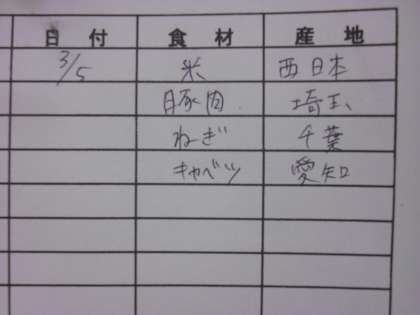 日付 食材 産地
3/5 米 西日本
豚肉 埼玉
ねぎ 千葉
キャベツ 愛知